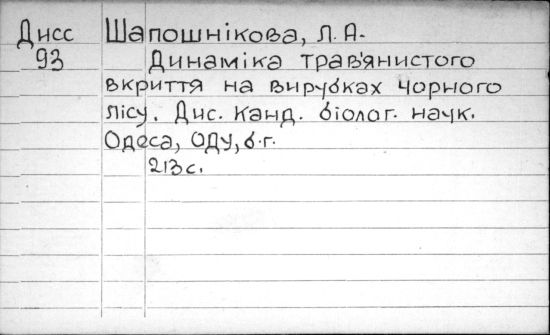 Дисс Шапошнікова, Л. А.
93 Динаміка трав'янистого
вкриття на вирубках чорного
лісу. Дис. канд. біолог. наук.
Одеса, ОДУ, б.г.
213 с.